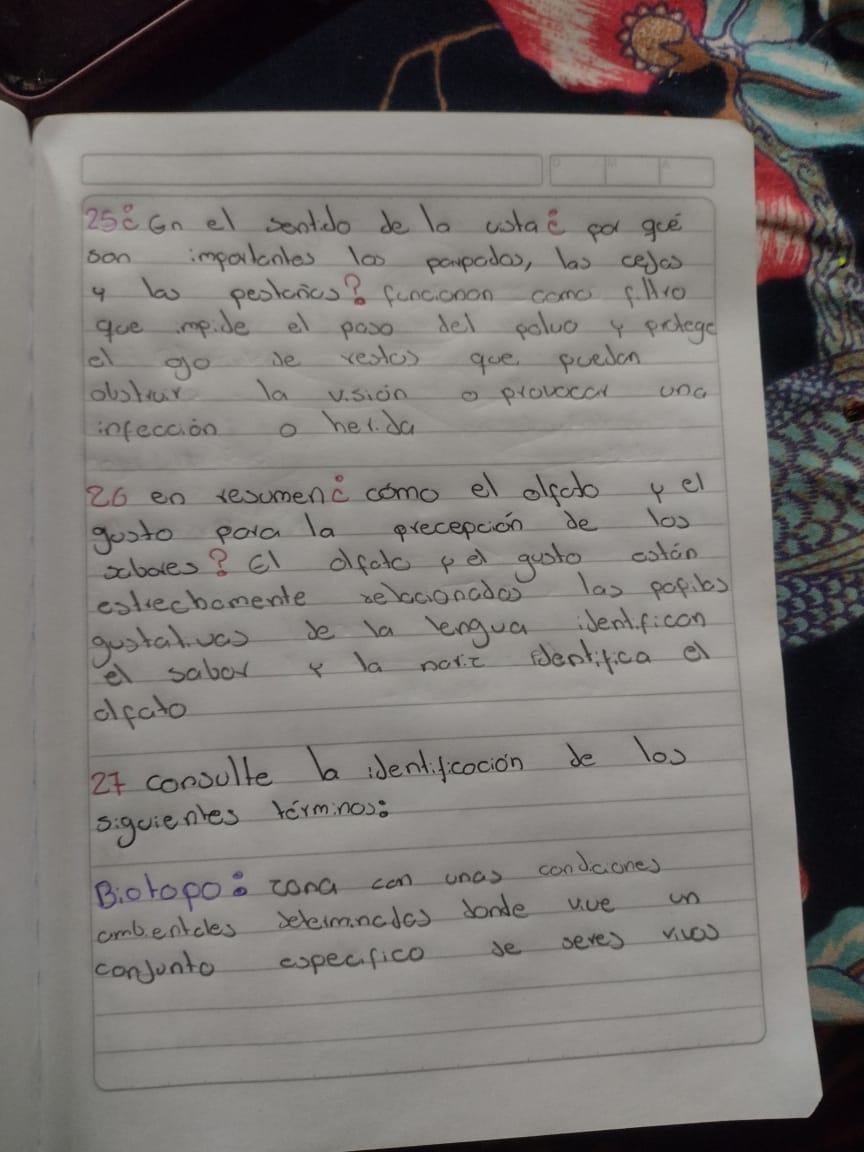 25¿ En el sentido de la vista ¿ por qué
son importantes los parpados, las cejas
y las pestañas? funcionan como filtro
que impide el paso del polvo y protege
el ojo de restos que puedan
obstruir la visión o provocar una
infección o herida
26 en resumen ¿ cómo el olfato y el
gusto para la precepción de los
sabores? El olfato y el gusto están
estrechamente relacionados las papilas
gustativas de la lengua identifican
el sabor y la nariz identifica el
olfato
27 consulte la identificación de los
siguientes términos:
Biotopo: zona con unas condiciones
ambientales determinadas donde vive un
conjunto especifico de seres vivos